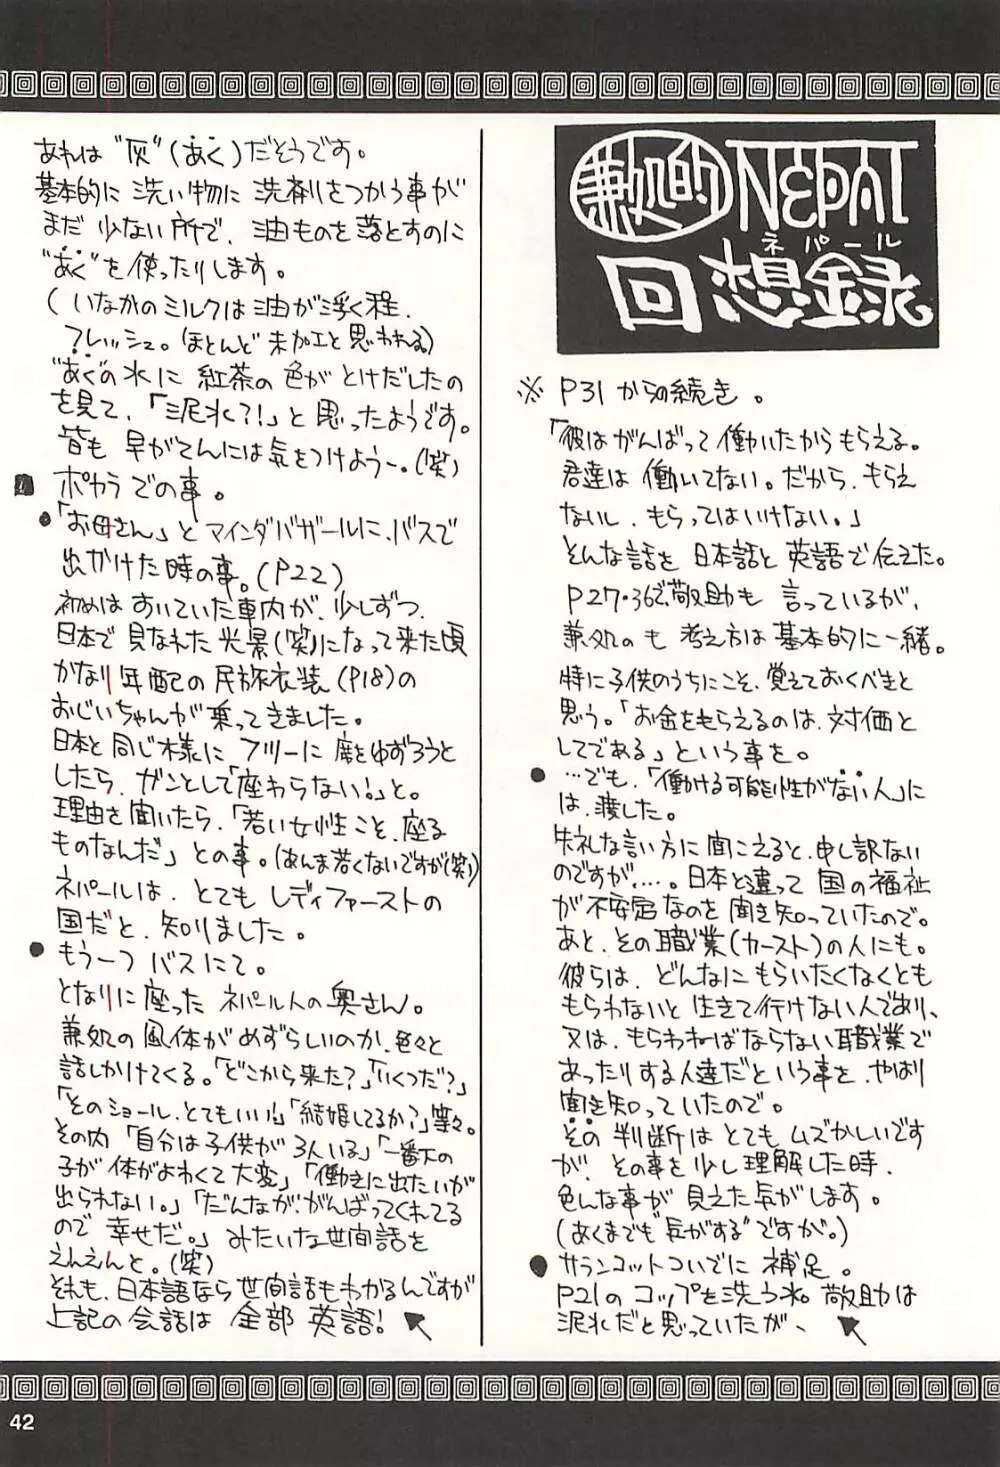 兼処的NEPAL
ネパール
回想録
※ P31 からの続き。
「彼はがんばって働いたからもらえる。
君達は 働いてない。だから、もらえ
ないし、もらってはいけない。」
そんな話を 日本語と 英語で伝えた。
P27・36で敬助も 言っているが、
兼処のも 考え方は 基本的に一緒。
特に子供のうちにこそ、覚えておくべきと
思う。「お金をもらえるのは、対価と
してである」という事を。
● …でも、「働ける可能性がない人」に
は、渡した。
失礼な言い方に 聞こえると、申し訳ない
のですが、…。日本と違って 国の福祉
が 不安定なのを 聞き知っていたので。
あと、その職業(カースト)の人にも。
彼らは、どんなに もらいたくなくとも
もらわないと 生きて行けない人であり、
又は、もらわねばならない職業で
あったりする人達だという事を、やはり
聞き知っていたので。
その 判断は とても ムズかしいです
が、その事を少し理解した時、
色んな事が 見えた気がします。
(あくまでも"気がする"ですが。)
● サランコットついでに 補足。
P21の コップを洗う水。敬助は
泥水だと思っていたが、
あれは "灰"(あく)だそうです。
基本的に 洗い物に 洗剤をつかう事が
まだ 少ない所で、油ものを落とすのに
"あく"を使ったりします。
(いなかのミルクは油が浮く程、
フレッシュ。(ほとんど 未加工と思われる)
"あく"の水に 紅茶の色が とけだしたの
を見て、「泥水?!」と思ったようです。
皆も 早がてんには気をつけようー。(笑)
■ ポカラでの事。
●「お母さん」と マインダバザールに、バスで
出かけた時の事。(P22)
初めは すいていた車内が、少しずつ、
日本で 見なれた 光景(笑)になって来た頃
かなり 年配の 民族衣装(P18)の
おじいちゃんが 乗ってきました。
日本と同じ様に フツーに 席をゆずろうと
したら、ガンとして「座わらない!」と。
理由を聞いたら、「若い女性こそ、座る
ものなんだ」との事。(あんま若くないですが(笑))
ネパールは、とても レディファーストの
国だと、知りました。
● もう一つ バスにて。
となりに座った ネパール人の奥さん。
兼処の 風体が めずらしいのか、色々と
話しかけてくる。「どこから来た?」「いくつだ?」
「そのショール、とてもいい!」「結婚してるか?」等々。
その内 「自分は子供が 3人いる」「一番下の
子が 体がよわくて 大変」「働きに出たいが
出られない。」「だんなが、がんばってくれてる
ので 幸せだ。」 みたいな世間話を
えんえんと。(笑)
それも、日本語なら 世間話もわかるんですが
上記の 会話は 全部 英語!
42